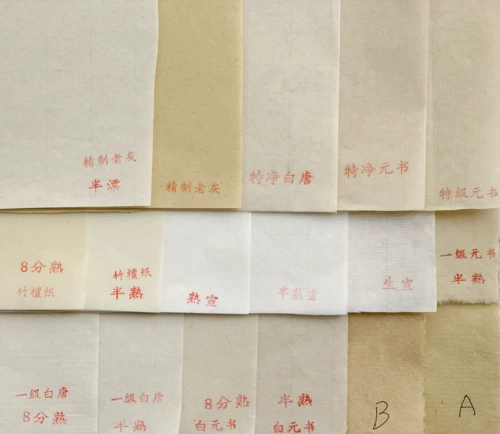 精制老灰
半漂
精制老灰
特净白唐
特净元书
特级元书
8分熟
竹檀纸
竹檀纸
半熟
熟宣
半熟宣
生宣
一级元书
半熟
一级白唐
8分熟
一级白唐
半熟
8分熟
白元书
半熟
白元书
B
A